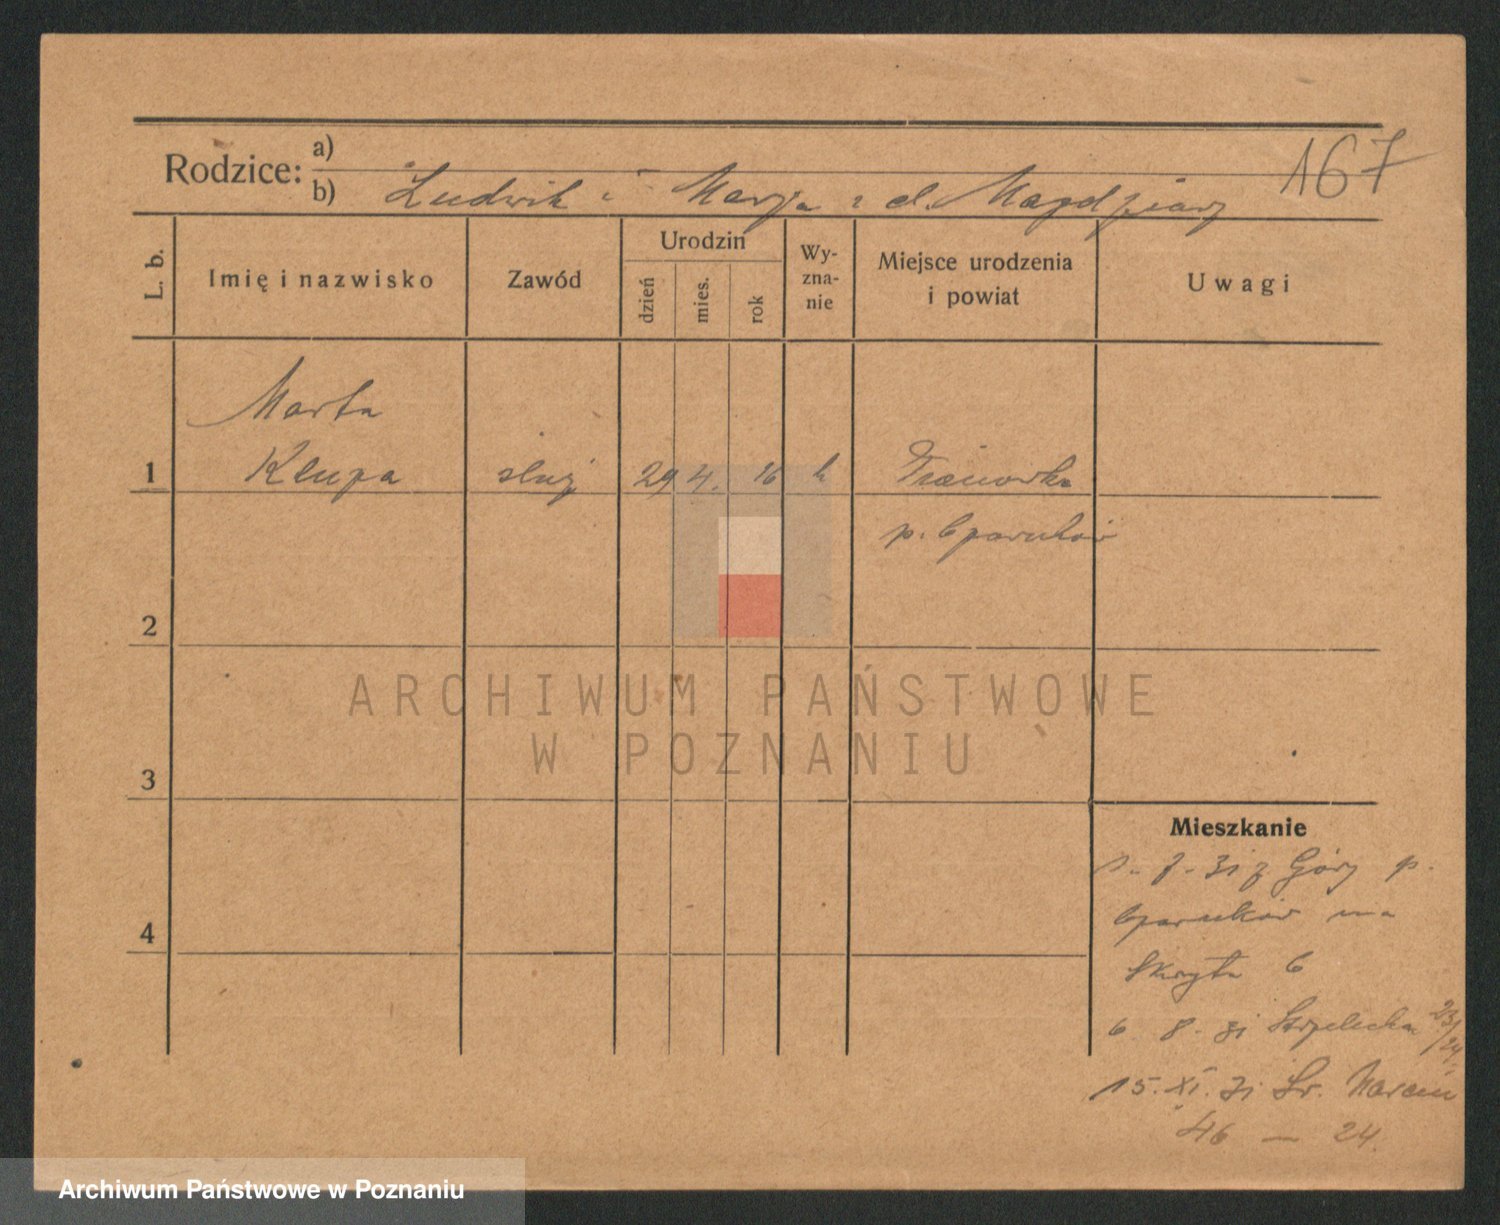 167
Rodzice: a)
b) Ludwik i Marja z d. Magdziarz
L. b.
Imię i nazwisko
Zawód
Urodzin
dzień
mies.
rok
Wy-
zna-
nie
Miejsce urodzenia
i powiat
Uwagi
Marta
1 Klupa służ 29 4. 16 k
p. Czarnków
2
ARCHIWUM PAŃSTWOWE
W POZNANIU
3
Mieszkanie
31 z Góry p.
Czarnków na
4
Skryta 6
6. 8. 31 Strzelecka 23/24
15. XI. 31 Św. Marcin
46 — 24.
Archiwum Państwowe w Poznaniu